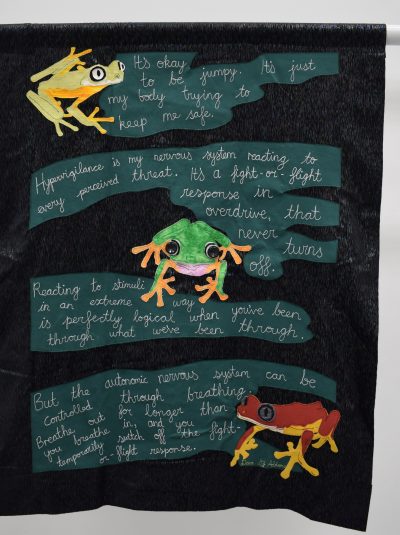 It's okay to be jumpy. It's just
my body trying to
keep me safe.
Hypervigilance is my nervous system reacting to
every perceived threat. It's a fight-or-flight
response in
overdrive, that
never
turns
off.
Reacting to stimuli
in an extreme way
is perfectly logical when you've been
through what we've been through.
But the autonomic nervous system can be
controlled through breathing.
Breathe out for longer than
you breathe in, and you
temporarily switch off the fight-
or-flight response.